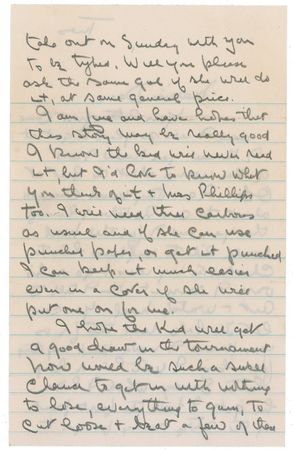 take out on Sunday with you
to be typed. Will you please
ask the same gal if she will do
it, at same general price.
I am fine and have hopes that
this story may be really good
I know the kid will never read
it, but I'd like to know what
you think of it + Mrs Phillips
too. I will need three carbons
as usual and if she can use
punched paper, or get it punched
I can keep it much easier
even in a cover if she will
put one on for me.
I hope the Kid will get
a good draw in the tournament
now would be such a swell
chance to get in with nothing
to lose, everything to gain, to
cut loose + beat a few of them